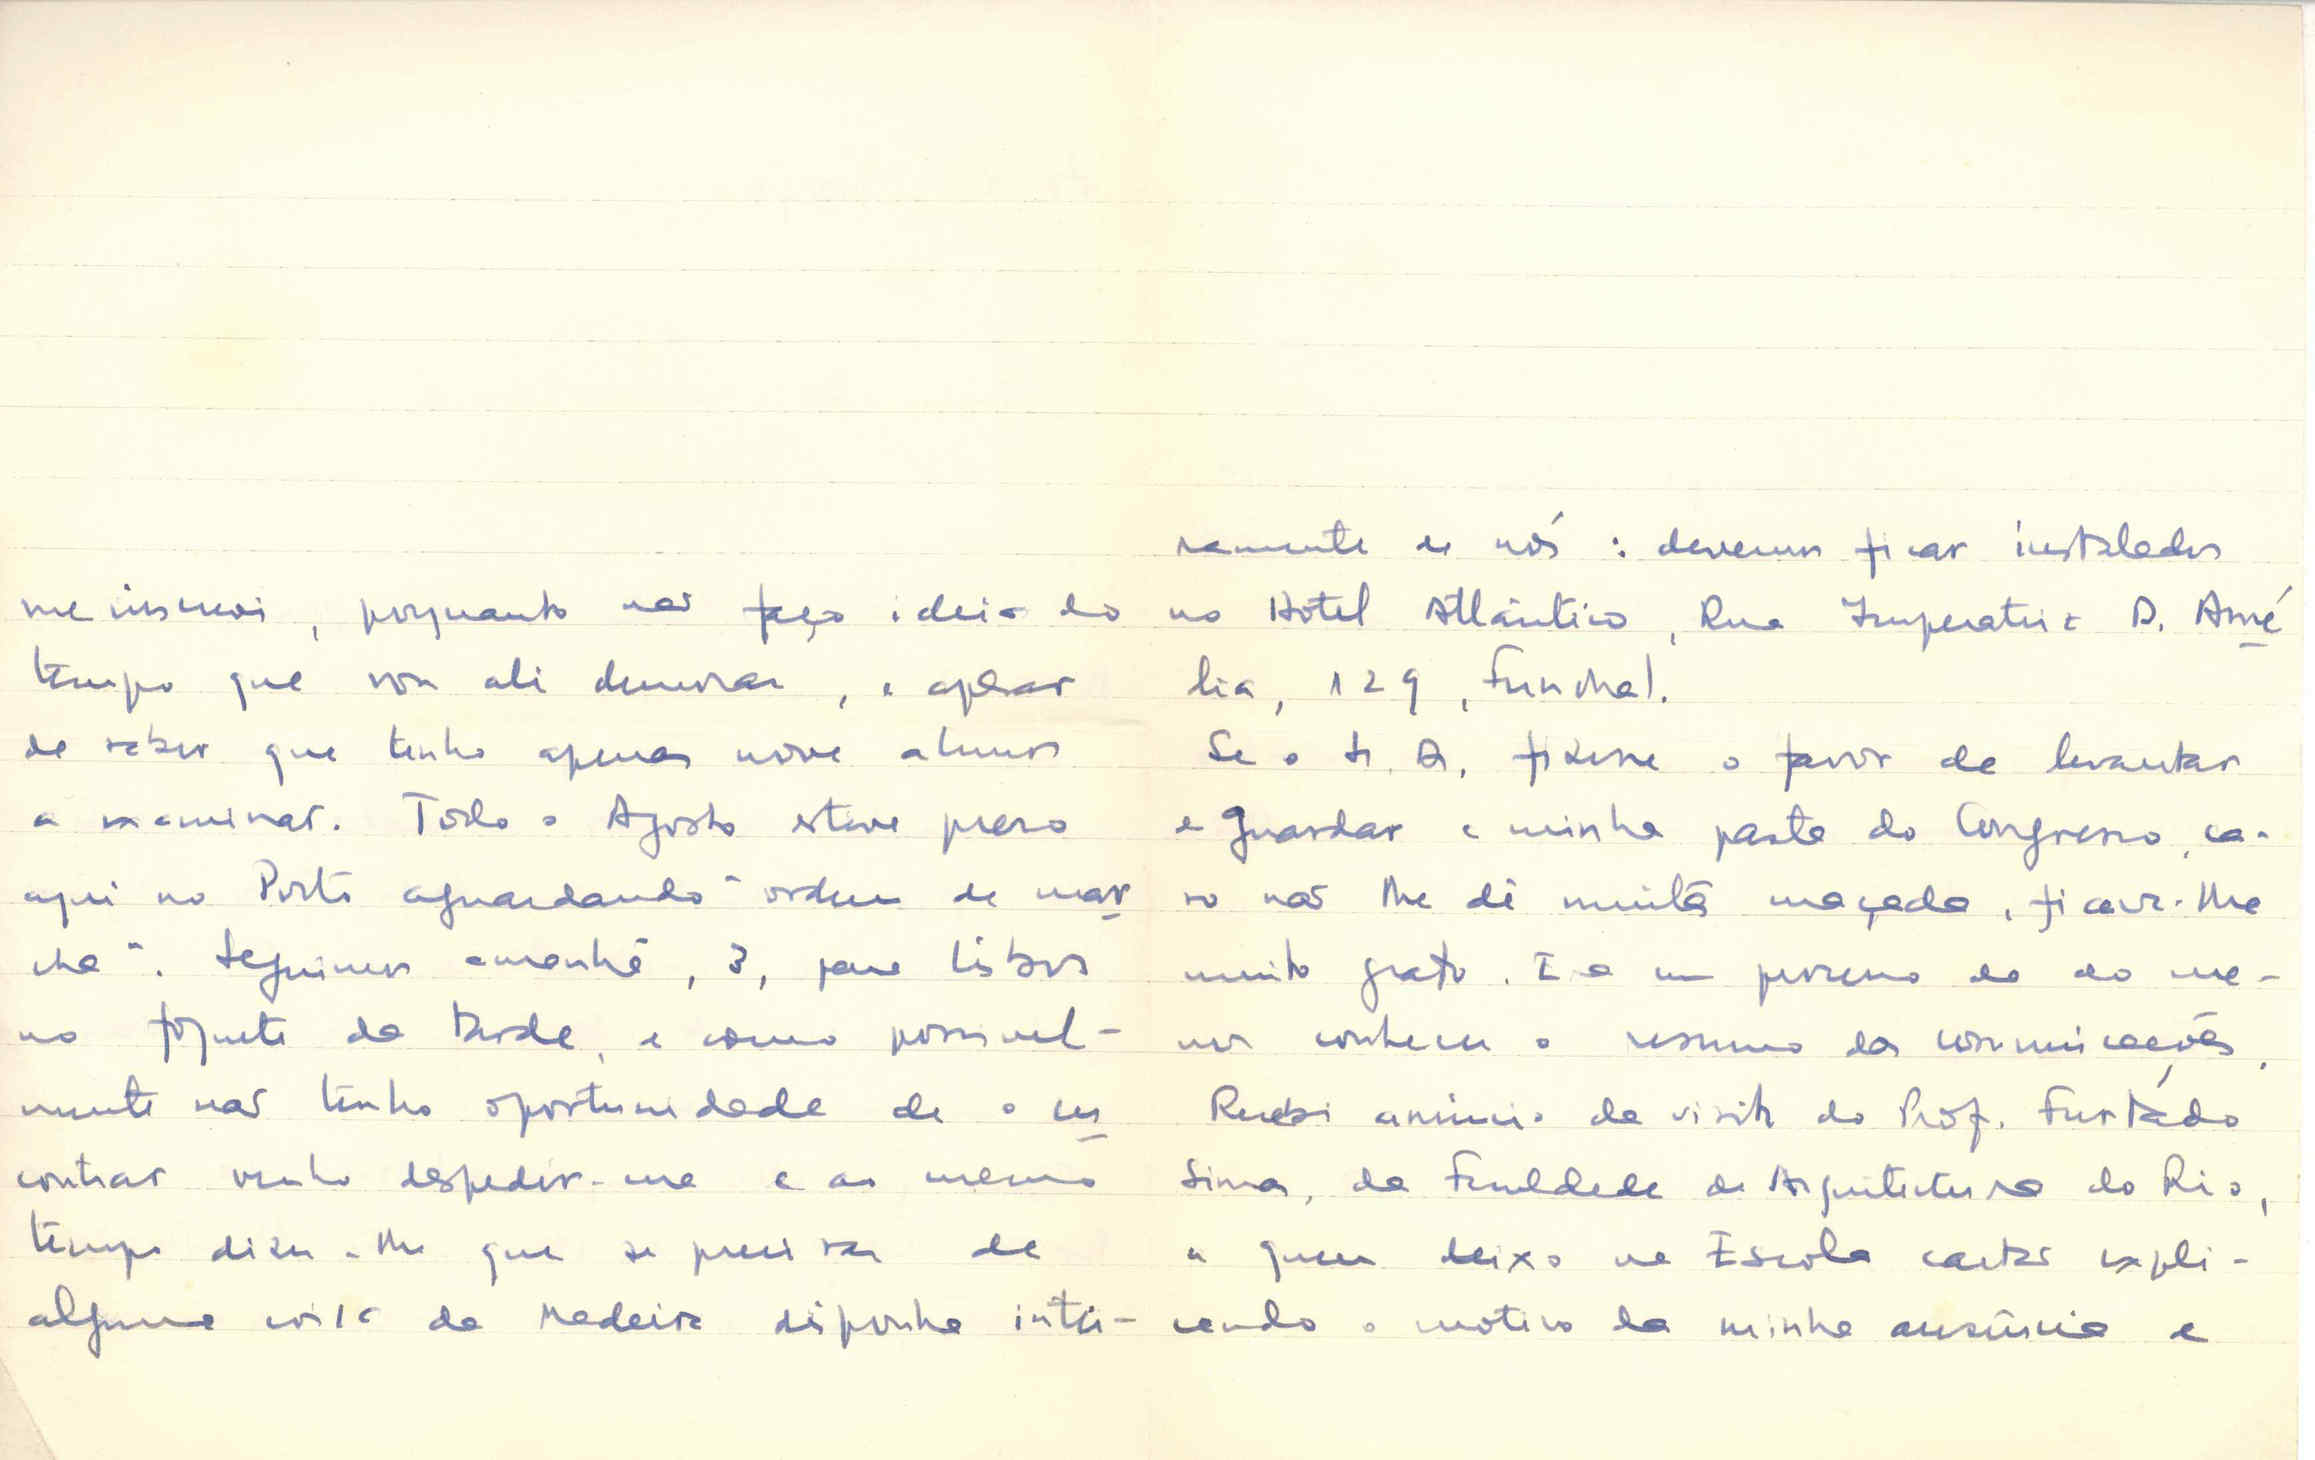 me inscrevi, porquanto não faço ideia do
tempo que vou ali demorar, e apesar
de saber que tenho apenas nove alunos
a examinar. Todo o Agosto estive preso
aqui no Porto aguardando "ordem de mar
cha". Seguimos amanhã, 3, para Lisboa
no foguete da tarde, e como possivel-
mente não tenho oportunidade de o en
contrar venho despedir-me e ao mesmo
tempo dizer-lhe que se precisar de
alguma coisa da Madeira disponha intei-
ramente de nós: devemos ficar instalados
no Hotel Atlântico, Rua Imperatriz D. Amé
lia, 129, Funchal.
Se o Sr. Dr. fizesse o favor de levantar
e guardar a minha pasta do Congresso, ca-
so não lhe dê muita maçada, ficava-lhe
muito grato. É a um pequeno do do me-
nos conhecer o resumo das comunicações.
Recebi anúncio da visita do Prof. Furtado
Simas, da Faculdade de Arquitectura do Rio,
a quem deixo na Escola cartas expli-
cando o motivo da minha ausência e